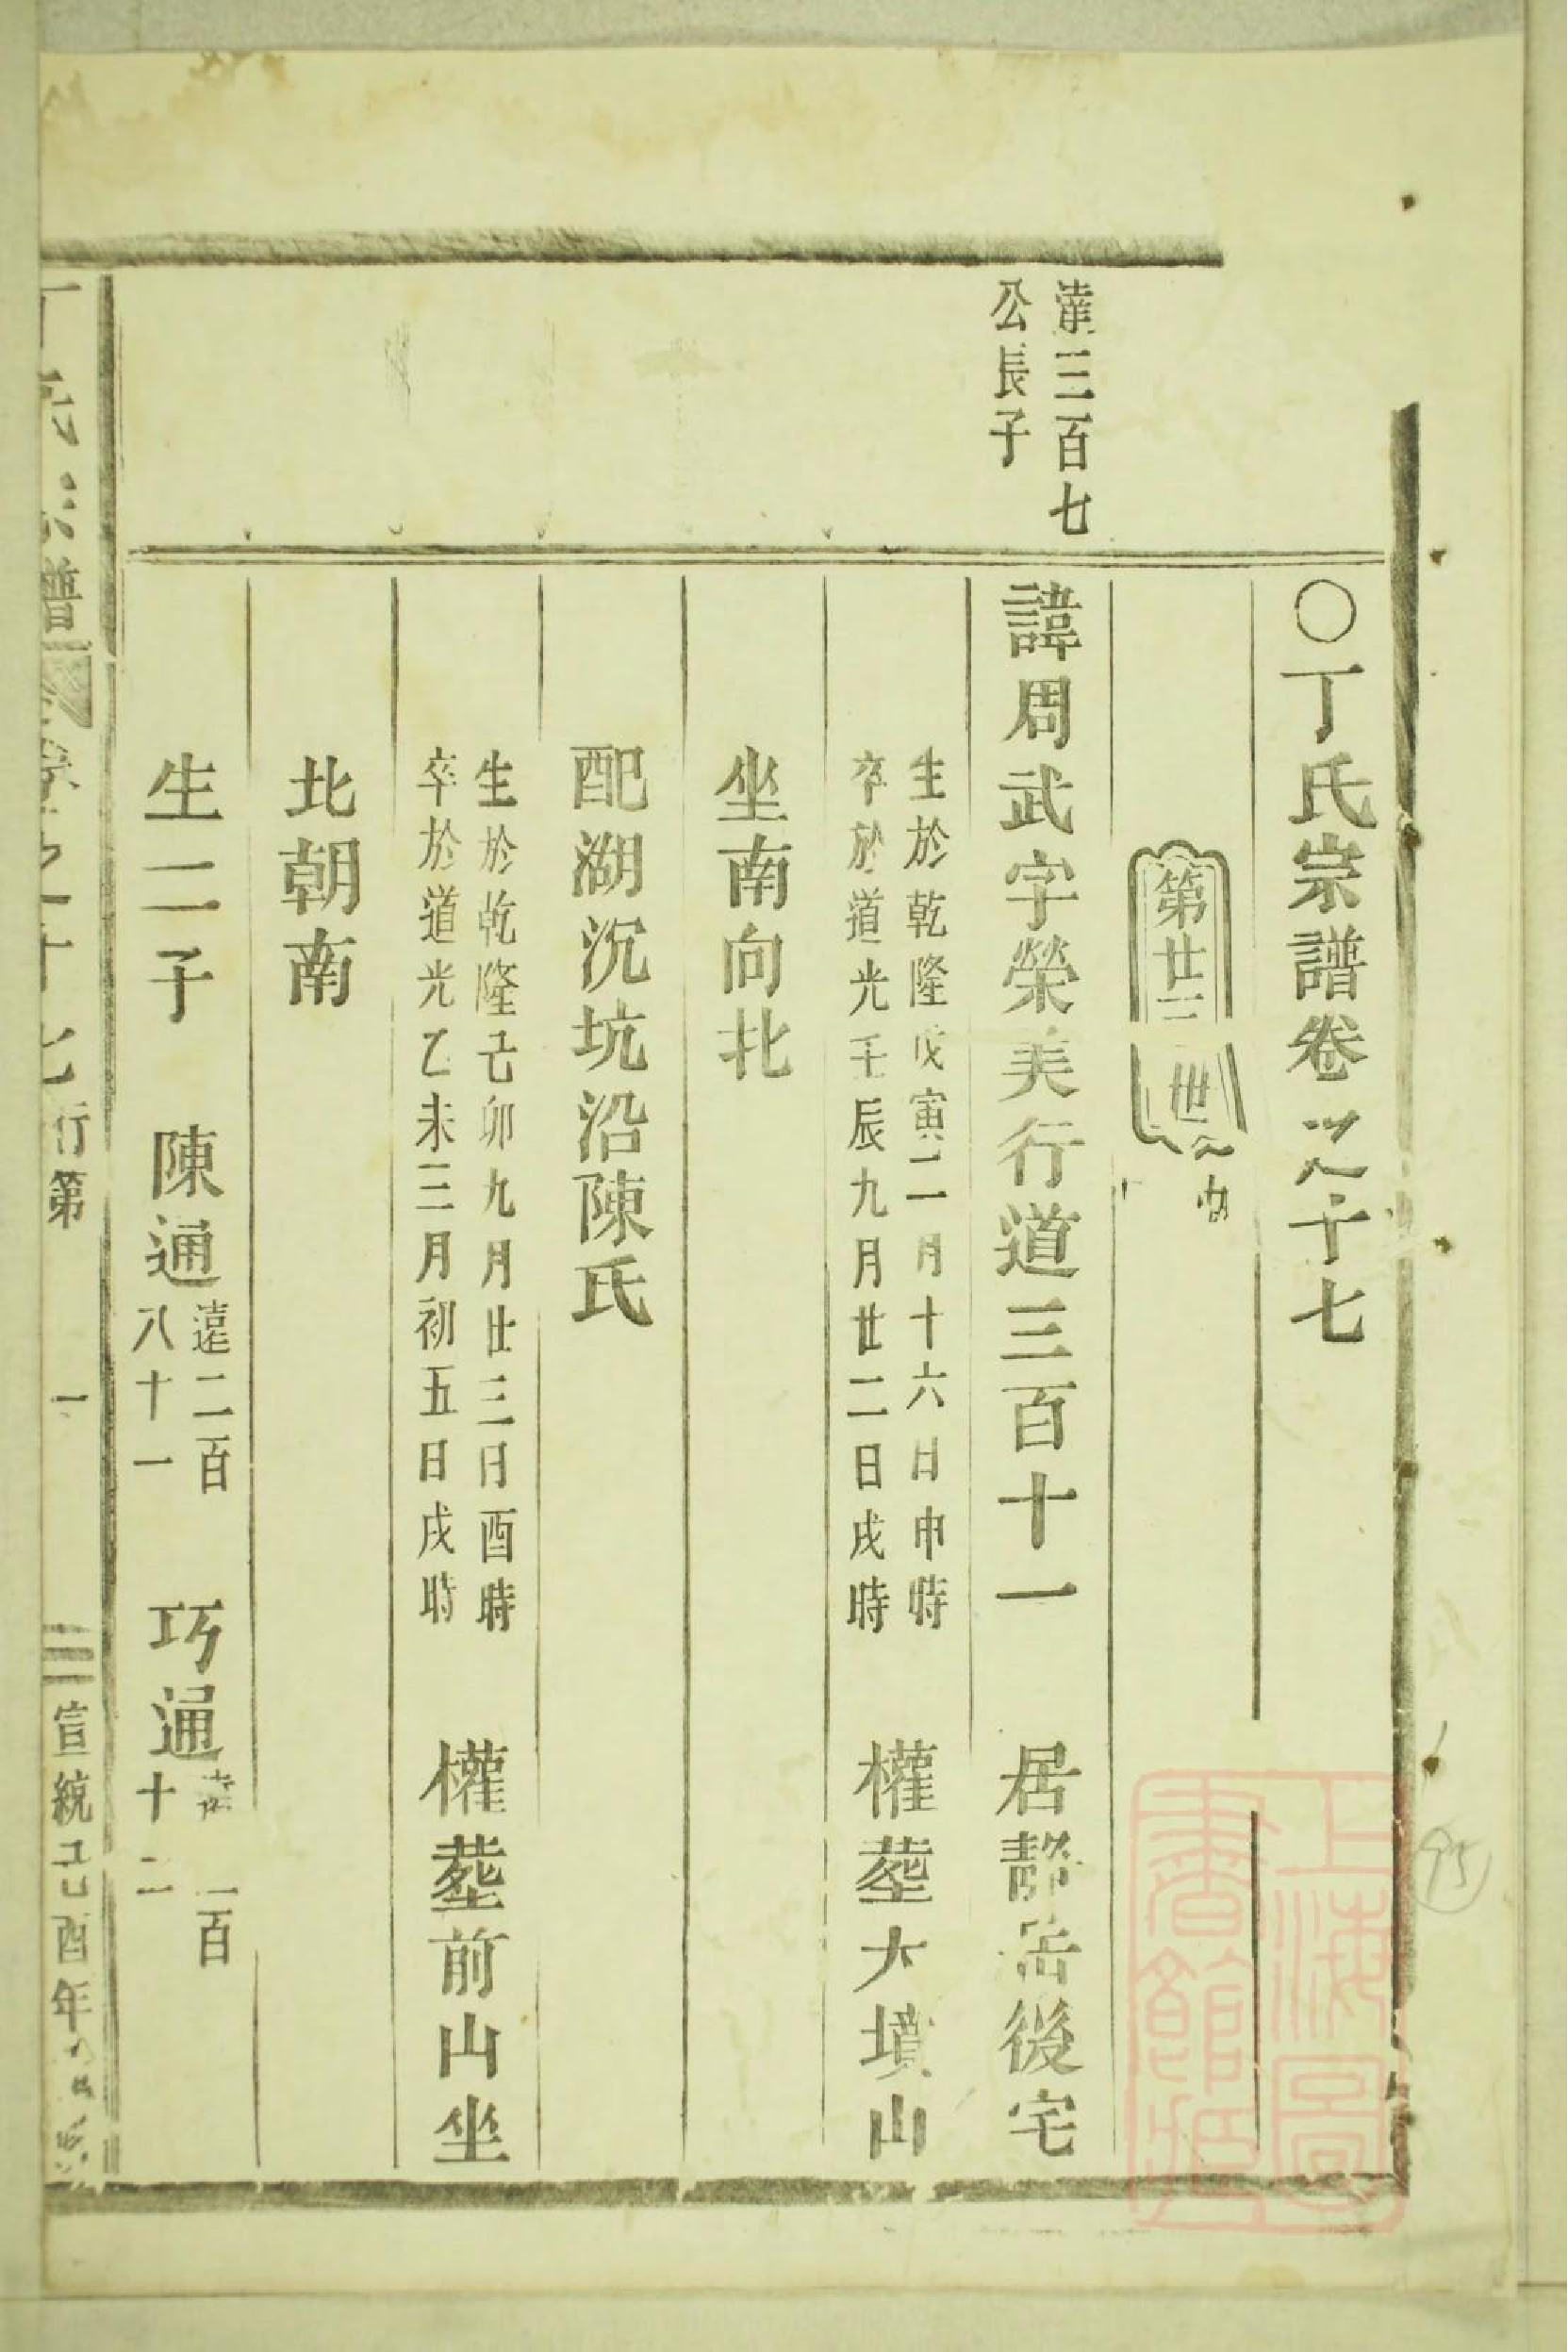 ○丁氏宗譜卷之十七
第廿三世
三百七
公長子
諱周武字榮美行道三百十一 居靜岳後宅
生於乾隆戊寅二月十六日申時
卒於道光壬辰九月廿二日戌時
權塟大墳山
坐南向北
配湖沉坑沿陳氏
生於乾隆己卯九月廿三日酉時
卒於道光乙未三月初五日戌時
權塟前山坐
北朝南
生二子 陳通 遠二百
八十一
巧通 百
十二
丁氏宗譜 卷之十七 行第 一 宣統己酉年
上海圖書館藏
95